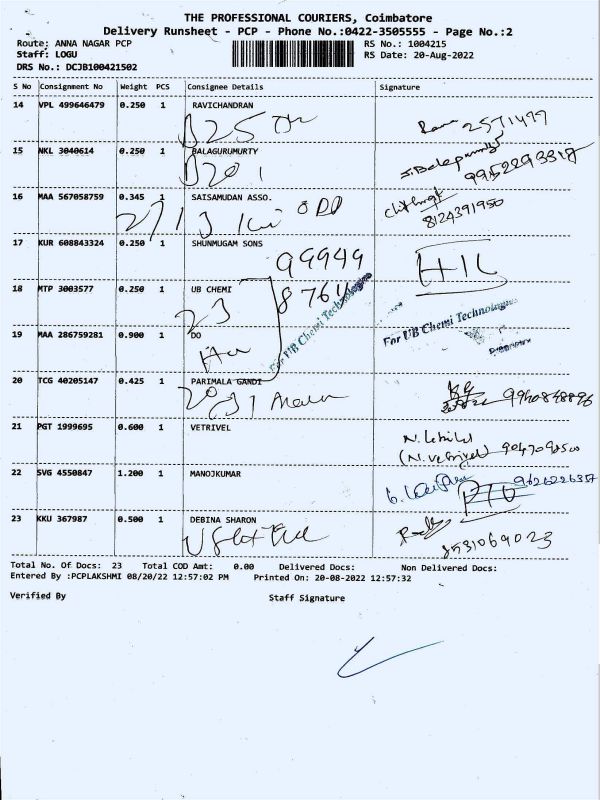 THE PROFESSIONAL COURIERS, Coimbatore
Delivery Runsheet - PCP - Phone No.:0422-3505555 - Page No.:2
Route: ANNA NAGAR PCP
RS No.: 1004215
Staff: LOGU
RS Date: 20-Aug-2022
DRS No.: DCJB100421502
S No Consignment No Weight PCS Consignee Details Signature
14 VPL 499646479 0.250 1 RAVICHANDRAN
2571477
15 NKL 3040614 0.250 1 BALAGURUMURTY
16 MAA 567058759 0.345 1 SAISAMUDAN ASSO.
8124391950
17 KUR 608843324 0.250 1 SHUNMUGAM SONS
99949
18 MTP 3003577 0.250 1 UB CHEMI
8764
23
For UB Chemi Technologies
For UB Chemi Technologies
19 MAA 286759281 0.900 1 DO
20 TCG 40205147 0.425 1 PARIMALA GANDI
9940848896
21 PGT 1999695 0.600 1 VETRIVEL
(N. Vetrivel)
22 SVG 4550847 1.200 1 MANOJKUMAR
23 KKU 367987 0.500 1 DEBINA SHARON
8531069023
Total No. Of Docs: 23 Total COD Amt: 0.00 Delivered Docs: Non Delivered Docs:
Entered By :PCPLAKSHMI 08/20/22 12:57:02 PM Printed On: 20-08-2022 12:57:32
Verified By Staff Signature